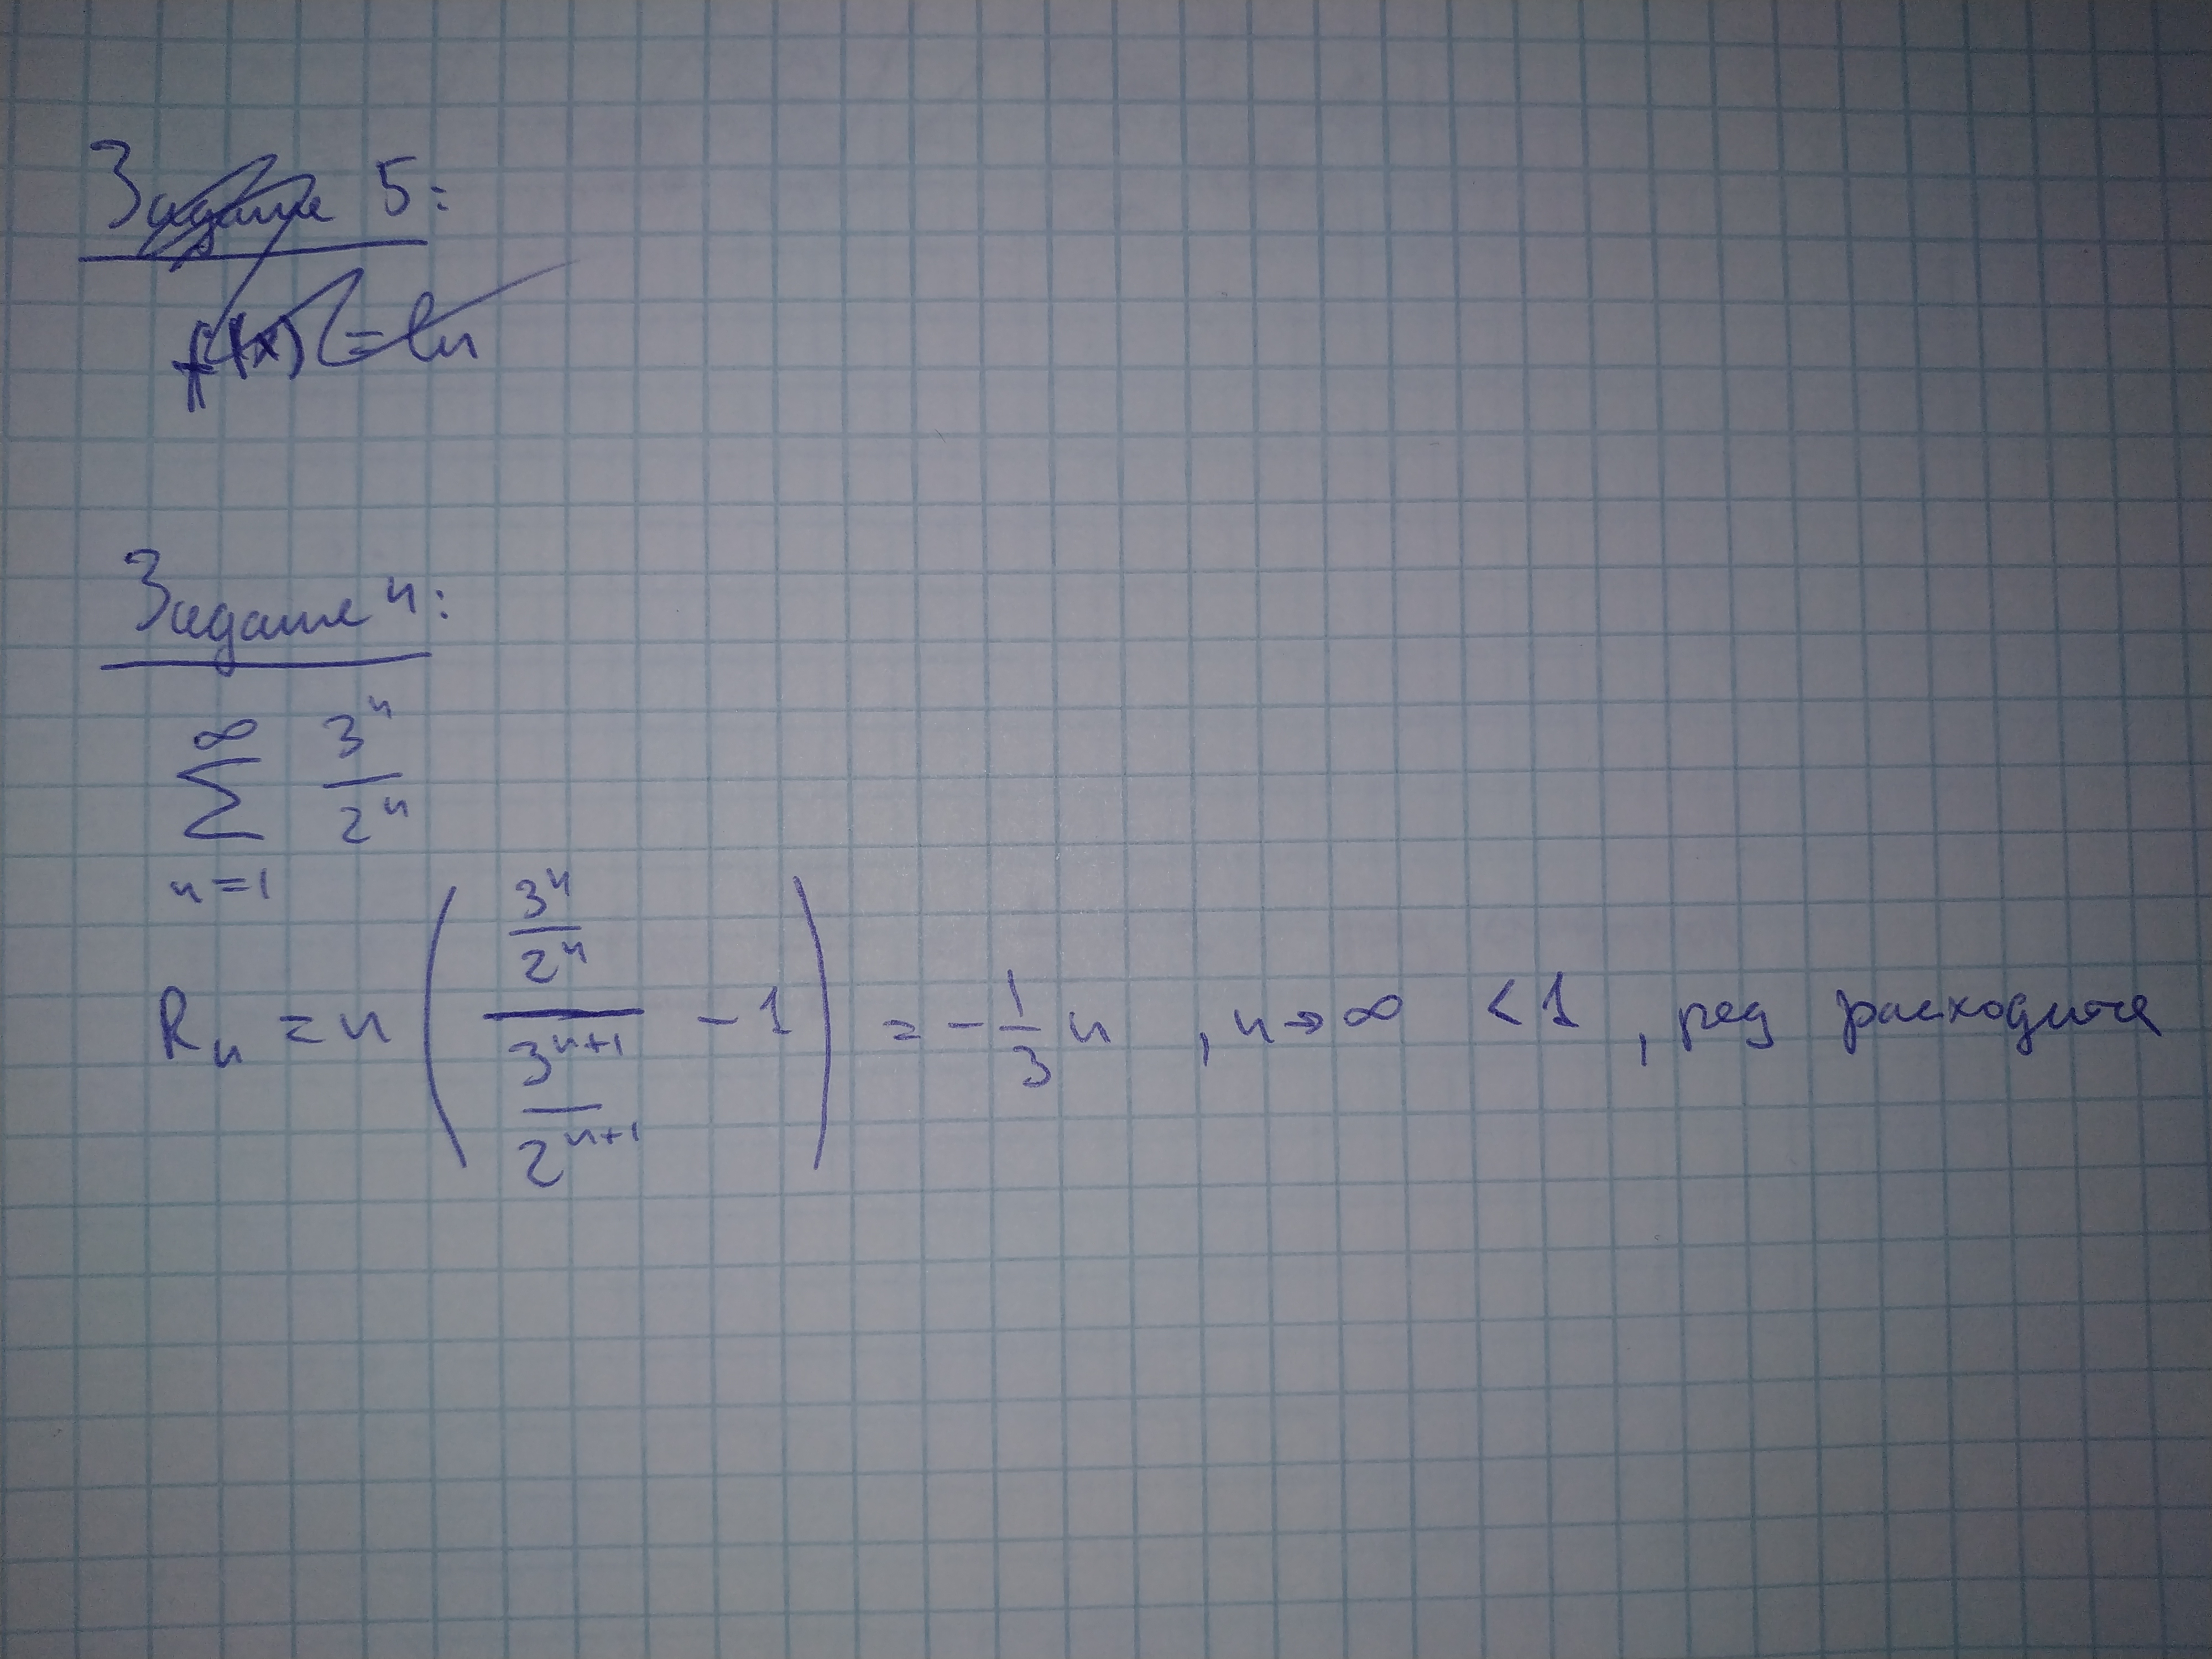 Задание 5:
f(x) = ln
Задание 4:
∑_{n=1}^{∞} 3^n / 2^n
R_n = n ( (3^n / 2^n) / (3^{n+1} / 2^{n+1}) - 1 ) = - 1/3 n , n → ∞ < 1 , ряд расходится